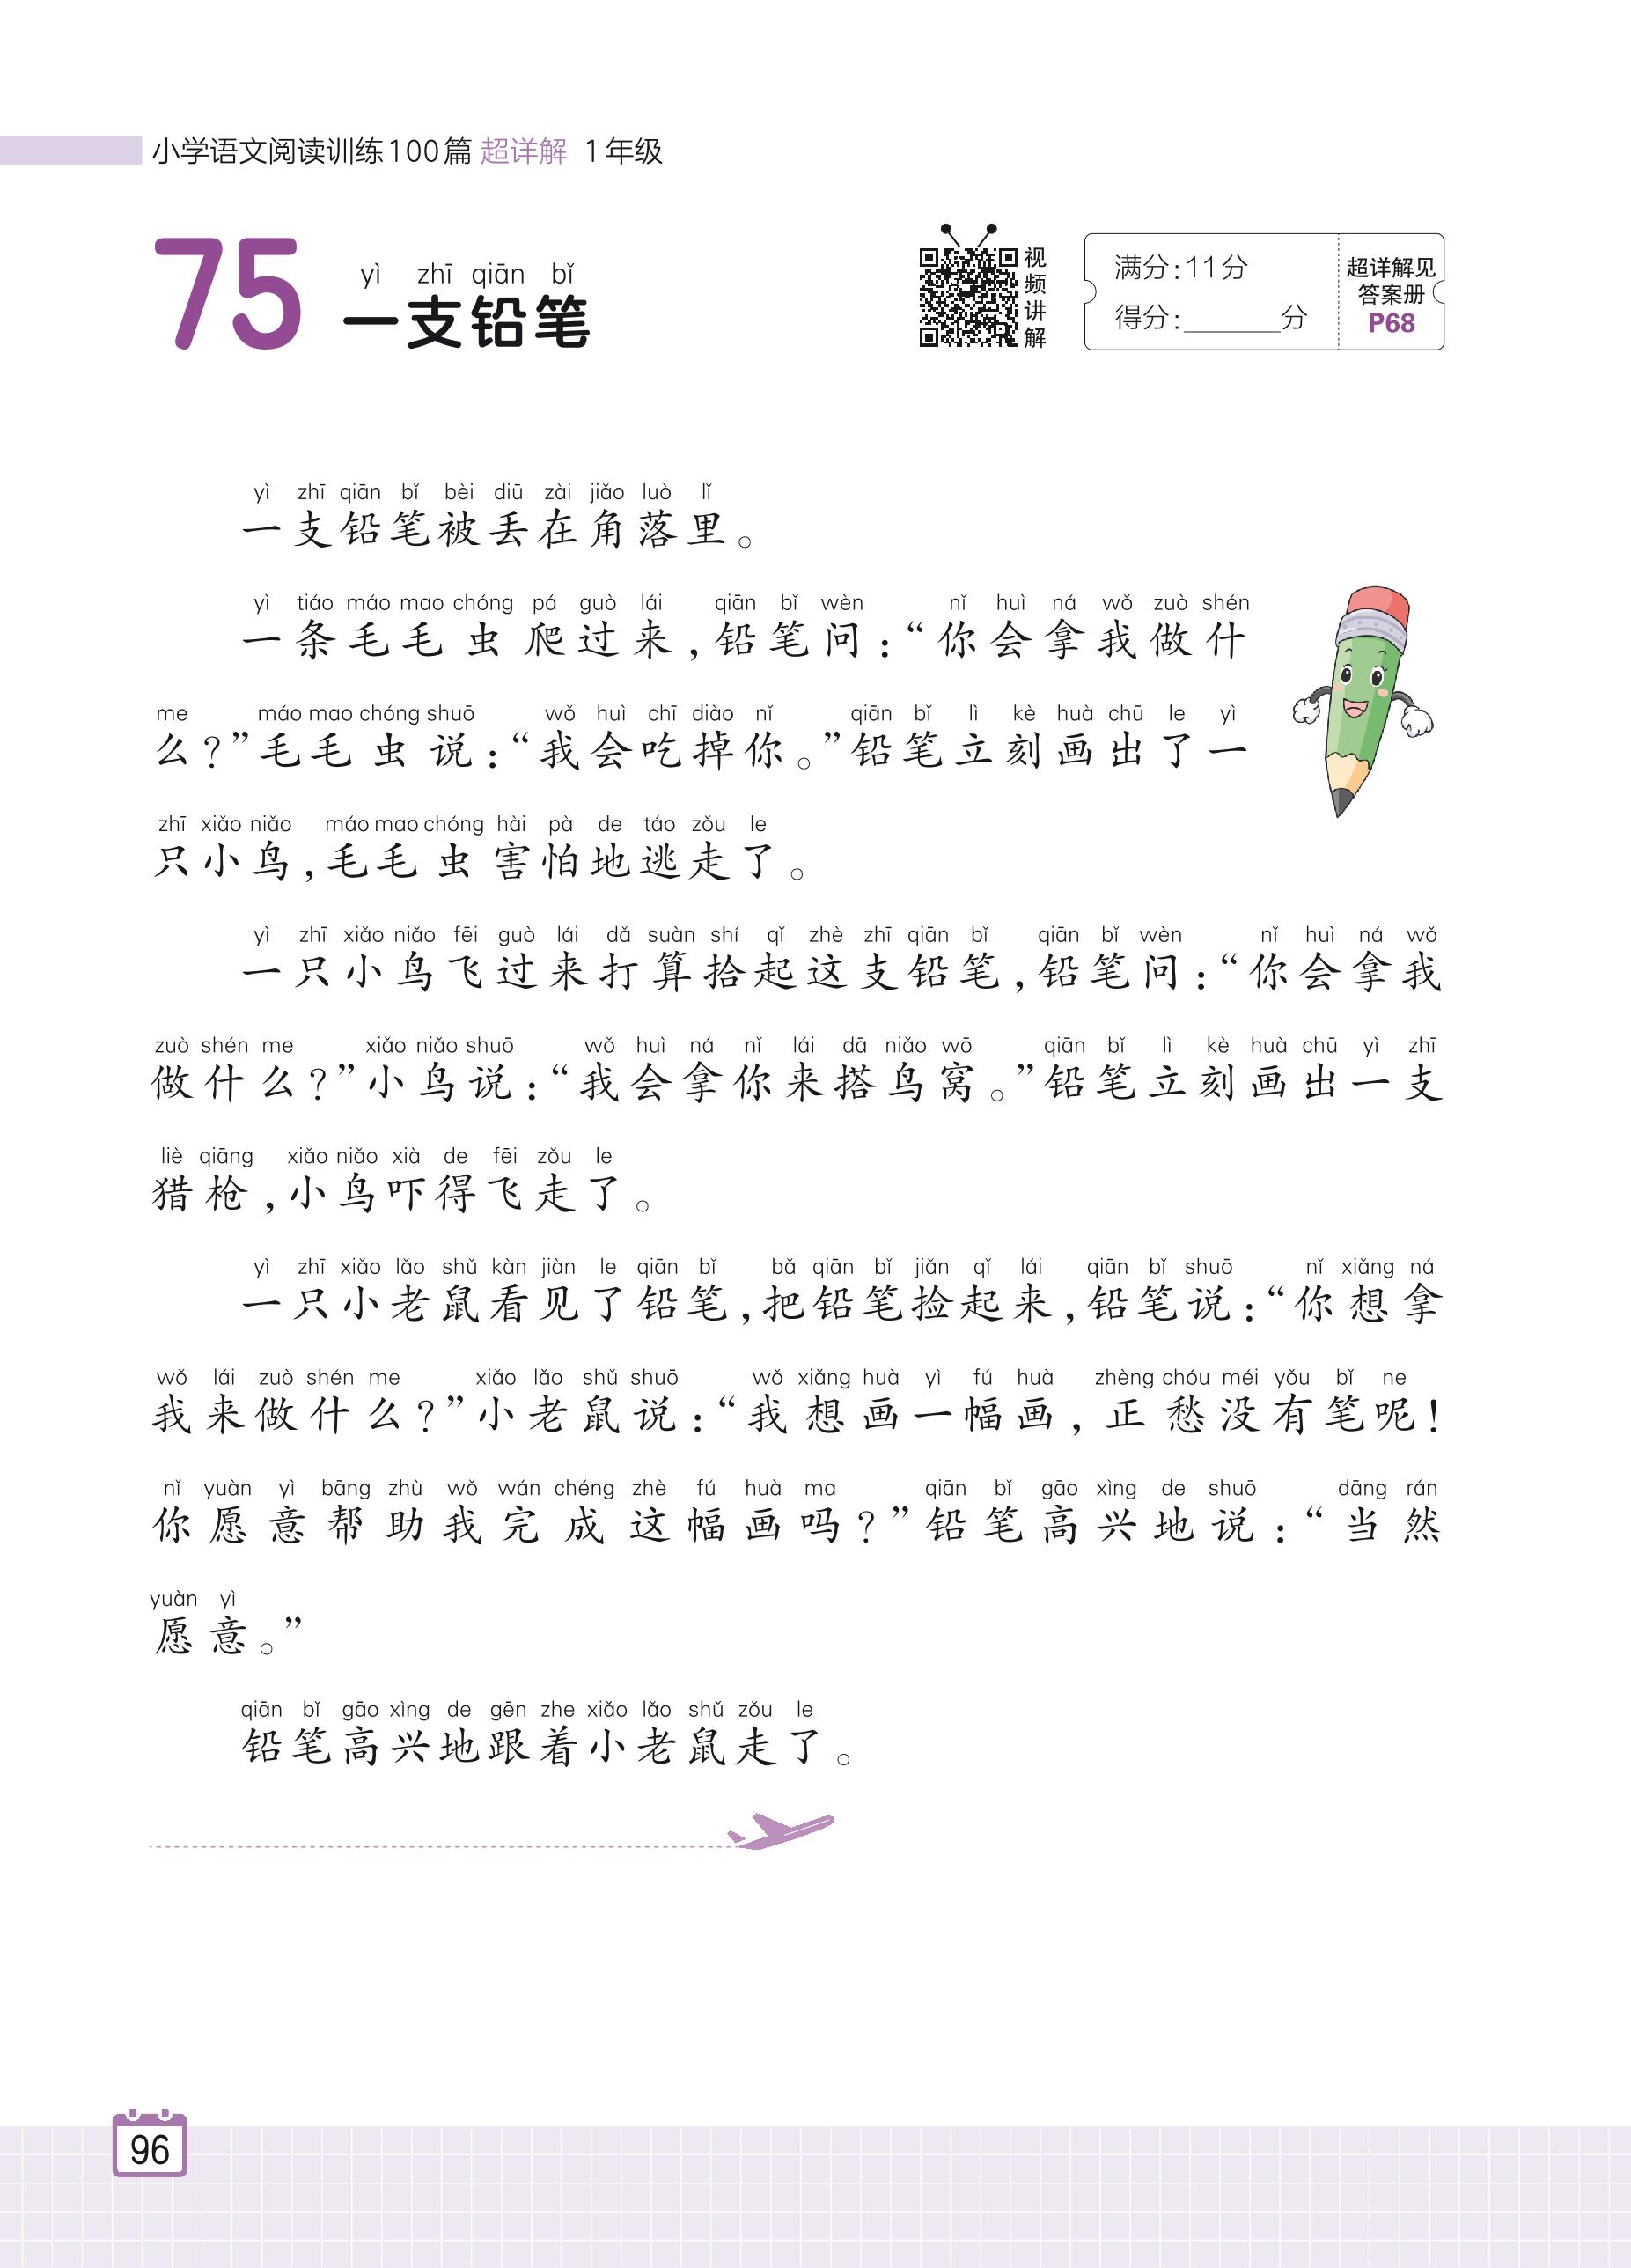 小学语文阅读训练100篇 超详解 1年级
75
yì zhī qiān bǐ
一支铅笔
视频讲解
满分:11分
得分:______分
超详解见
答案册
P68
yì zhī qiān bǐ bèi diū zài jiǎo luò lǐ
一支铅笔被丢在角落里。
yì tiáo máo mao chóng pá guò lái qiān bǐ wèn nǐ huì ná wǒ zuò shén
一条毛毛虫爬过来,铅笔问:“你会拿我做什
me máo mao chóng shuō wǒ huì chī diào nǐ qiān bǐ lì kè huà chū le yì
么?”毛毛虫说:“我会吃掉你。”铅笔立刻画出了一
zhī xiǎo niǎo máo mao chóng hài pà de táo zǒu le
只小鸟,毛毛虫害怕地逃走了。
yì zhī xiǎo niǎo fēi guò lái dǎ suàn shí qǐ zhè zhī qiān bǐ qiān bǐ wèn nǐ huì ná wǒ
一只小鸟飞过来打算拾起这支铅笔,铅笔问:“你会拿我
zuò shén me xiǎo niǎo shuō wǒ huì ná nǐ lái dā niǎo wō qiān bǐ lì kè huà chū yì zhī
做什么?”小鸟说:“我会拿你来搭鸟窝。”铅笔立刻画出一支
liè qiāng xiǎo niǎo xià de fēi zǒu le
猎枪,小鸟吓得飞走了。
yì zhī xiǎo lǎo shǔ kàn jiàn le qiān bǐ bǎ qiān bǐ jiǎn qǐ lái qiān bǐ shuō nǐ xiǎng ná
一只小老鼠看见了铅笔,把铅笔捡起来,铅笔说:“你想拿
wǒ lái zuò shén me xiǎo lǎo shǔ shuō wǒ xiǎng huà yì fú huà zhèng chóu méi yǒu bǐ ne
我来做什么?”小老鼠说:“我想画一幅画,正愁没有笔呢!
nǐ yuàn yì bāng zhù wǒ wán chéng zhè fú huà ma qiān bǐ gāo xìng de shuō dāng rán
你愿意帮助我完成这幅画吗?”铅笔高兴地说:“当然
yuàn yì
愿意。”
qiān bǐ gāo xìng de gēn zhe xiǎo lǎo shǔ zǒu le
铅笔高兴地跟着小老鼠走了。
96